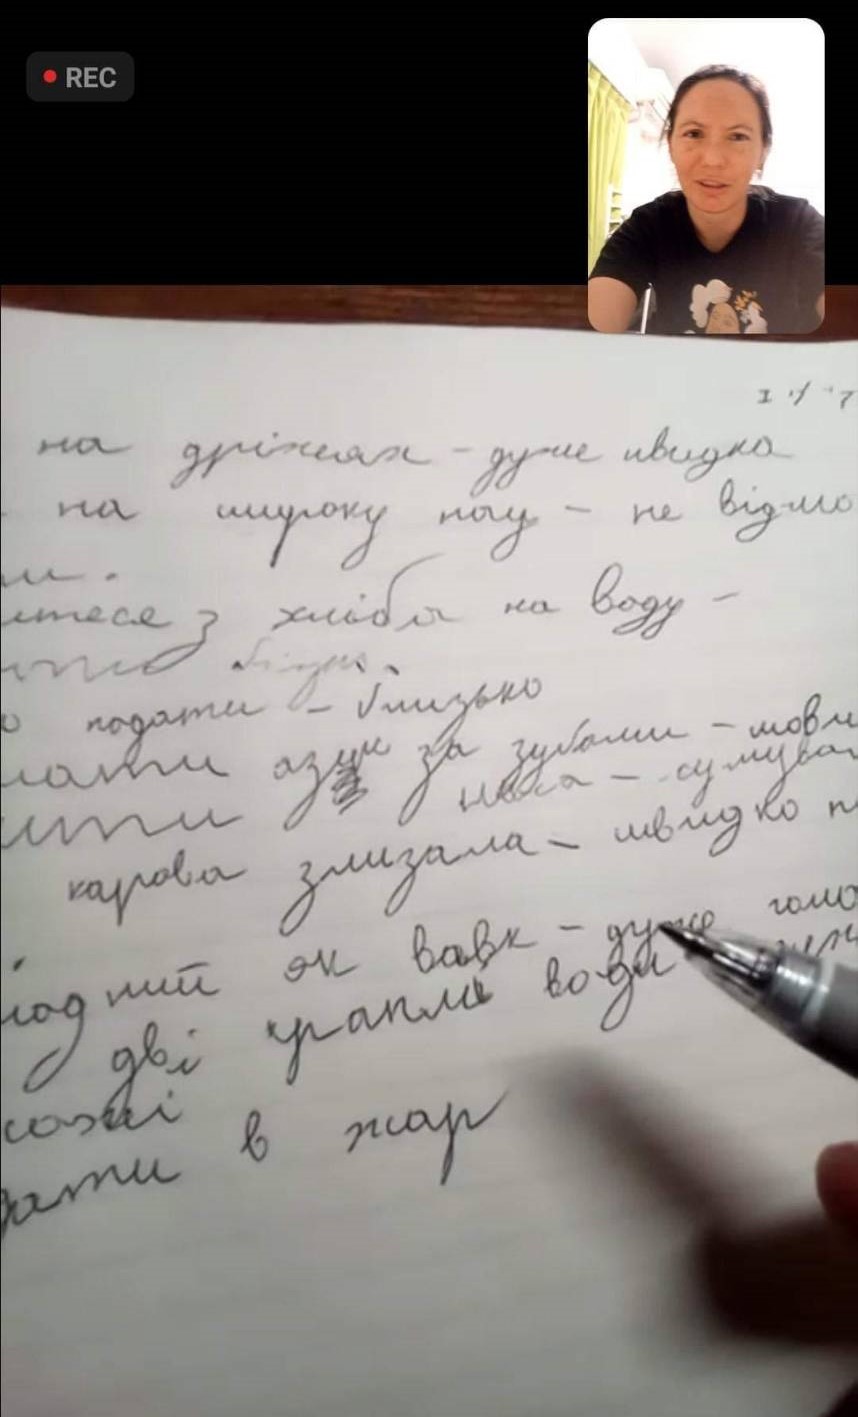 REC
на дріжжах - дуже швидко
- на широку ногу - не відмо
ми.
з хліба на воду -
бідно.
о подати - близько
мати язик за зубами - мовч
носа - сумува
карова злизала - швидко п
лодний як вовк - дуже голо
дві краплі води
схожі
дати в жар